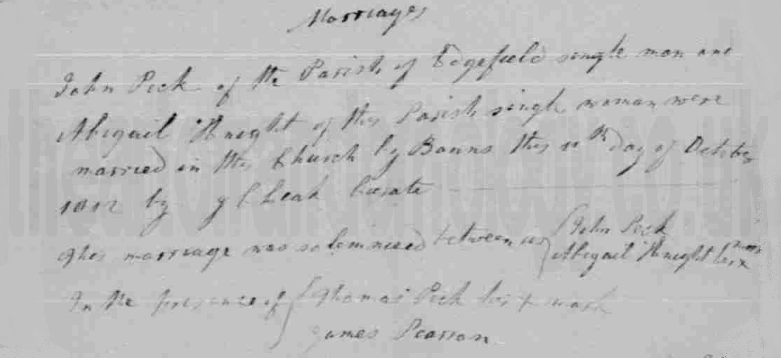 Marriages
John Peck of the Parish of Edgefield single man and
Abigail Knight of this Parish single woman were
married in this Church by Banns this 11th day of October
1812 by Leak Curate
This marriage was solemnized between us { John Peck
Abigail Knight her x mark
In the presence of { Thomas Peck his x mark
James Pearson